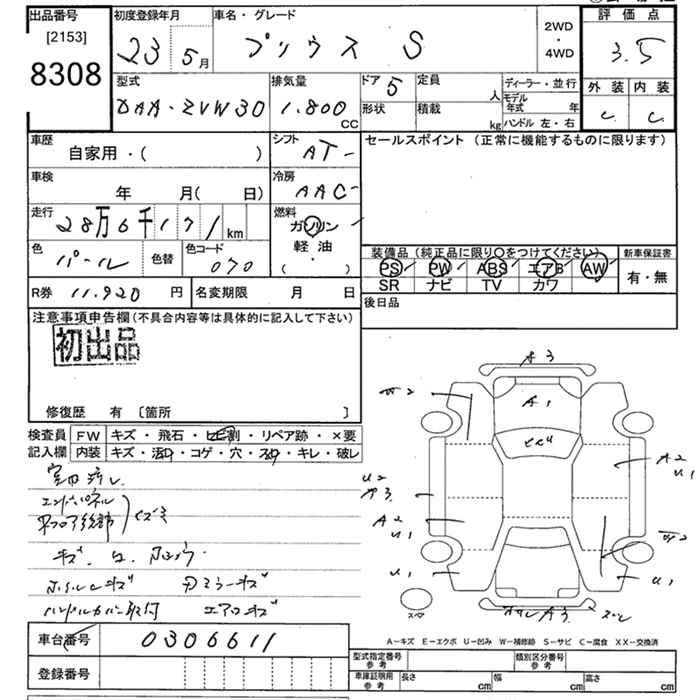 出品番号
[2153]
8308
初度登録年月
23 5月
車名・グレード
プリウス S
2WD
・
4WD
評価点
3.5
外装 内装
C C
型式
DAA-ZVW30
排気量
1.800 CC
ドア
5
形状
定員 人
積載 kg
ディーラー・並行
モデル年式 年
ハンドル 左・右
車歴
自家用・( )
シフト
AT
セールスポイント (正常に機能するものに限ります)
車検
年 月( 日)
冷房
AAC
走行
28万6千171 km
燃料
ガソリン
軽油
( ・ )
色
パール
色替
色コード
070
装備品(純正品に限り〇をつけてください)
新車保証書
PS PW ABS エアB AW
SR ナビ TV カワ
有・無
R券 11.920 円
名変期限 月 日
後日品
注意事項申告欄(不具合内容等は具体的に記入して下さい)
初出品
修復歴 有 [箇所 ]
検査員記入欄
FW キズ・飛石・ヒビ割・リペア跡・×要
内装 キズ・汚れ・コゲ・穴・スレ・キレ・破レ
エンドパネル
ホイルキズ
ドアミラーキズ
ハンドルカバー取付
エアロキズ
A3
W2
A1
U2
A3
A2
U1
U1
A2
U1
W2
U1
A3
スペア
車台番号
0306611
登録番号
A-キズ E-エクボ U-凹み W-補修跡 S-サビ C-腐食 XX-交換済
型式指定番号
参考
類別区分番号
参考
車庫証明用
参考
長さ cm
幅 cm
高さ cm